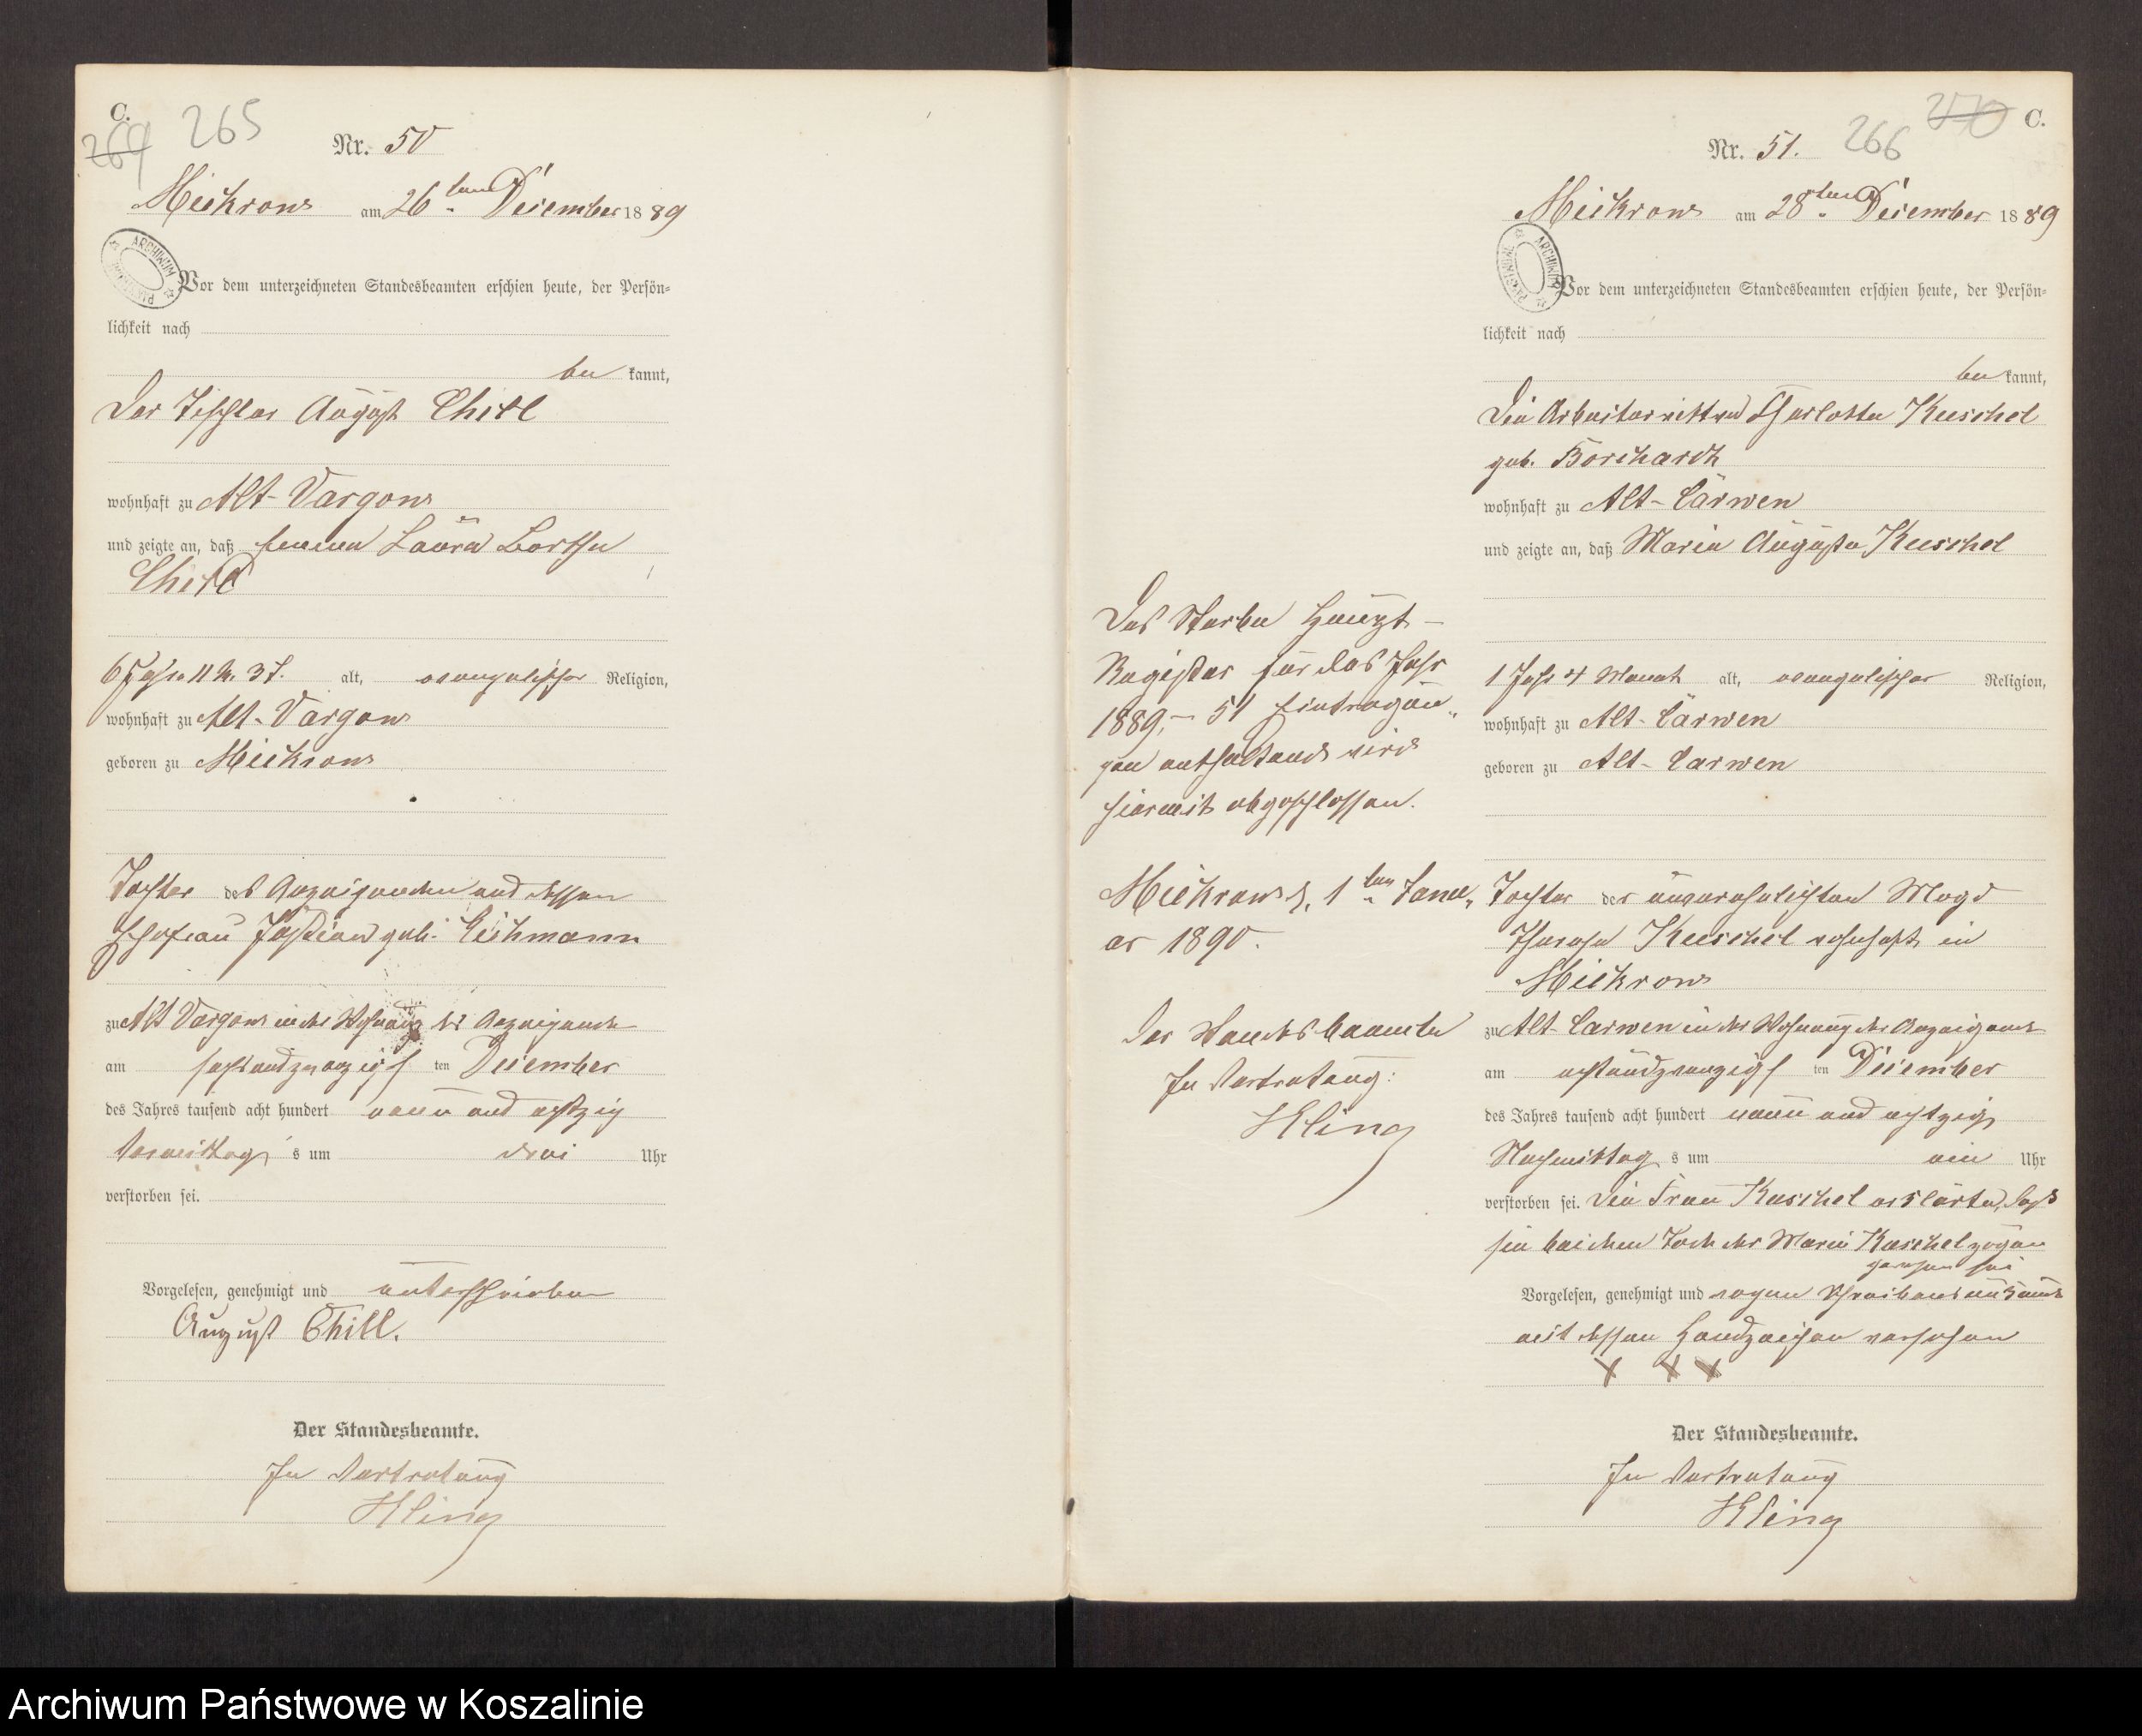 C.
264 265
Nr. 50
Mickrow am 26ten December 1889
ARCHIWUM
Vor dem unterzeichneten Standesbeamten erschien heute, der Persön-
lichkeit nach
be kannt,
Der Tischler August Thill
wohnhaft zu Alt-Vargow
und zeigte an, daß Emma Laura Bertha
Thill
6 Jahre 11 M. 3 T. alt, evangelischer Religion,
wohnhaft zu Alt-Vargow
geboren zu Mickrow
Tochter des Anzeigenden und dessen
Ehefrau Justine geb. Eichmann
zu Alt Vargow in der Wohnung des Anzeigende
am sechsundzwanzigs ten December
des Jahres tausend acht hundert neun und achtzig
Vormittag s um drei Uhr
verstorben sei.
Vorgelesen, genehmigt und unterschrieben
August Thill.
Der Standesbeamte.
In Vertretung
Kling
270 C.
266
Nr. 51.
Mickrow am 28ten December 1889
ARCHIWUM
Vor dem unterzeichneten Standesbeamten erschien heute, der Persön-
lichkeit nach
be kannt,
Die Arbeiterwittwe Charlotte Kuschel
geb. Borchardt
wohnhaft zu Alt-Carwen
und zeigte an, daß Marie Auguste Kuschel
1 Jahr 4 Monat alt, evangelischer Religion,
wohnhaft zu Alt-Carwen
geboren zu Alt-Carwen
Tochter der unverehelichten Magd
Therese Kuschel wohnhaft in
Mickrow
zu Alt-Carwen in der Wohnung der Anzeigend
am achtundzwanzigs ten December
des Jahres tausend acht hundert neun und achtzig
Nachmittag s um ein Uhr
verstorben sei. Die Frau Kuschel erklärte, daß
sie bei dem Tode der Marie Kuschel zugegen
gewesen sei
Vorgelesen, genehmigt und wegen Schreibensunkunde
mit dessen Handzeichen versehen
X X X
Der Standesbeamte.
In Vertretung
Kling
Das Sterbe Haupt-
Register für das Jahr
1889, 51 Eintragun„
gen enthaltend wird
hiermit abgeschlossen.
Mickrow d. 1ten Janu„
ar 1890.
Der Standesbeamte
In Vertretung:
Kling
Archiwum Państwowe w Koszalinie